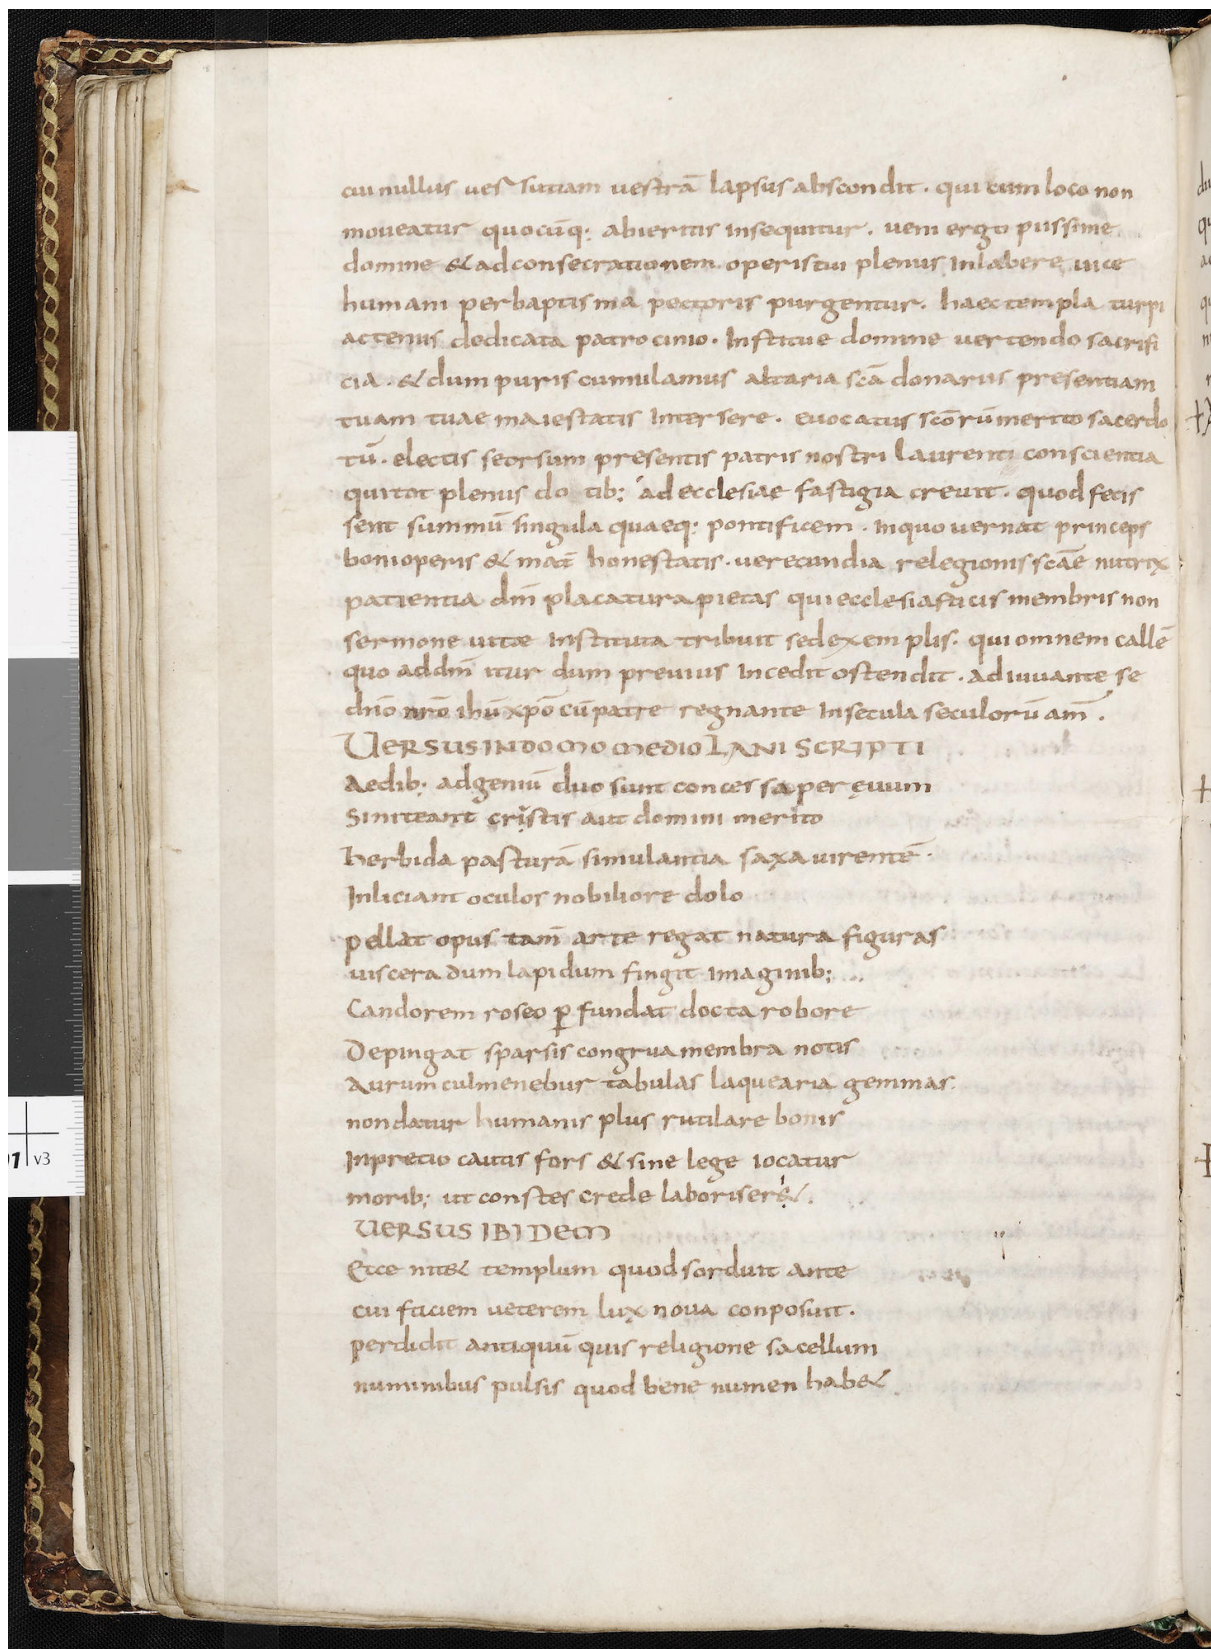 cui nullus uestitiam uestrā lapsus abscondit. qui cum loco non
moueatur quocūq; abieritis insequitur. ueni ergo piissime
domine & ad consecrationem operis tui plenus inlabere. uice
humani per baptisma pectoris purgentur. haec templa turpi
actenus dedicata patrocinio. Institue domine uertendo sacrifi
cia. & dum puris cumulamus altaria scā donariis presentiam
tuam tuae maiestatis intersere. euocatus scōrū merito sacerdo
tū. electis seorsum presentis patris nostri laurenti conscientia
qui tot plenus do tib; ad ecclesiae fastigia creuit. quod fecis
sent summū singula quaeq; pontificem. in quo uernat princeps
boni operis & mat̄ honestatis. uerecundia relegionis scāe nutrix
patientia dm̄ placatura pietas qui ecclesiasticis membris non
sermone uitae instituta tribuit sed exemplis. qui omnem callē
quo ad dm̄ itur dum preuius incedit ostendit. adiuuante se
dn̄o nr̄o ihū xp̄o cū patre regnante in secula seculorū am̄.
UERSUS IN DOMO MEDIOLANI SCRIPTI
Aedib; ad geniū duo sunt concessa per ęuum
Si niteant cristis aut domini merito
herbida pasturā simulantia saxa uirentē.
Inliciant oculos nobiliore dolo
pellat opus tam̄ arte regat natura figuras
uiscera dum lapidum fingit imaginib;
Candorem roseo ꝑfundat docta robore
Depingat sparsis congrua membra notis
Aurum culmen ebur tabulas laquearia gemmas.
non datur humanis plus rutilare bonis
Inpretio cautis fors & sine lege iocatur
morib; ut constes crede laboris er&.
UERSUS IBIDEM
Ecce nit& templum quod sorduit ante
cui faciem ueterem lux noua conposuit.
perdidit antiquū quis religione sacellum
numinibus pulsis quod bene numen hab&.